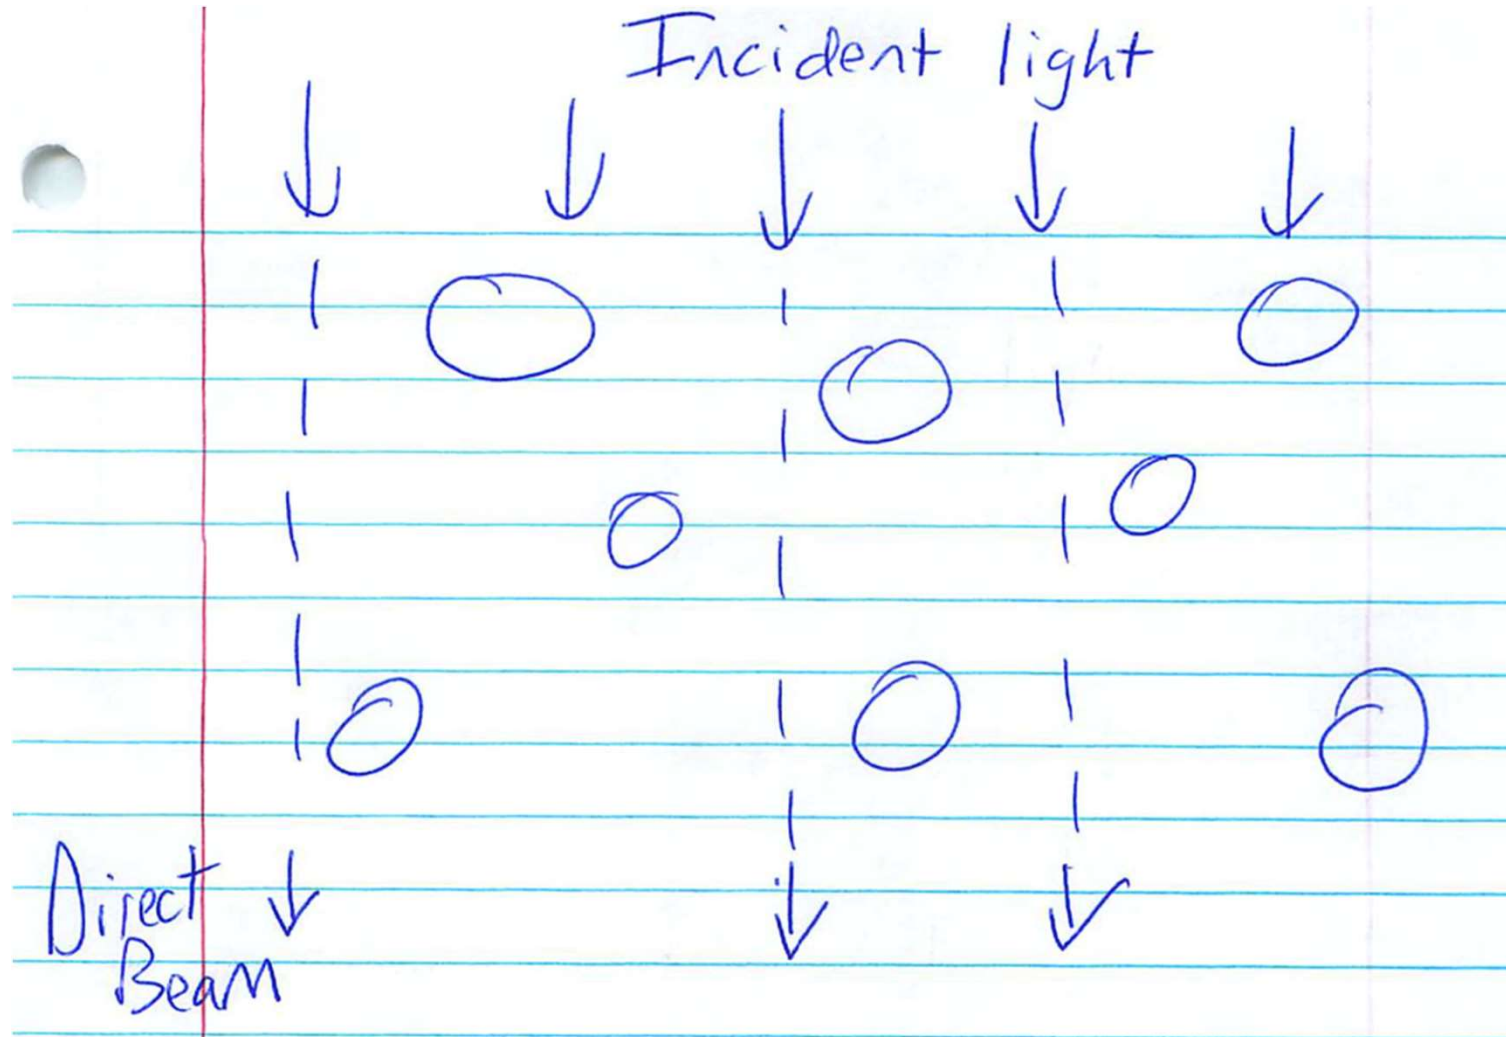 Incident light
Direct
Beam